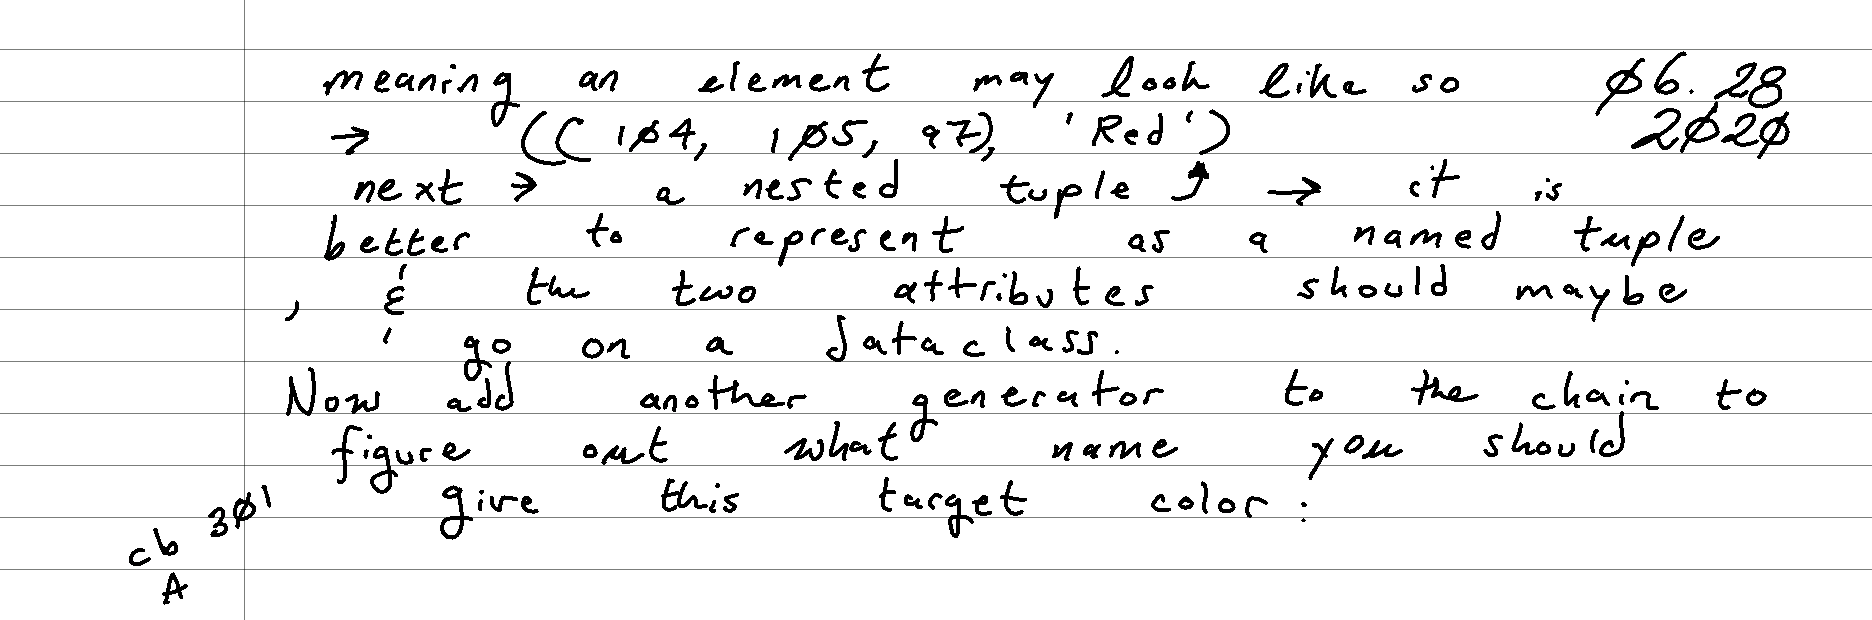 meaning an element may look like so 06.28
→ ((104, 105, 97), 'Red') 2020
next → a nested tuple ⤴ → it is
better to represent as a named tuple
, & the two attributes should maybe
go on a dataclass.
Now add another generator to the chain to
figure out what name you should
give this target color:
cb 301
A